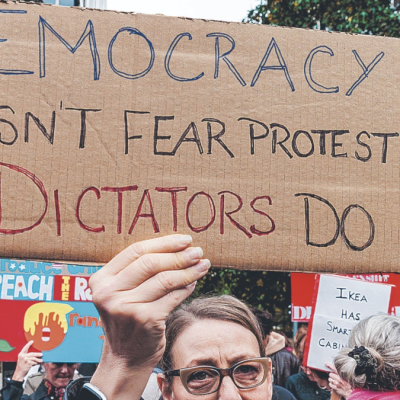 EMOCRACY
SN'T FEAR PROTEST
DICTATORS DO
PEACH THE
IKEA
HAS
SMART
CABIN